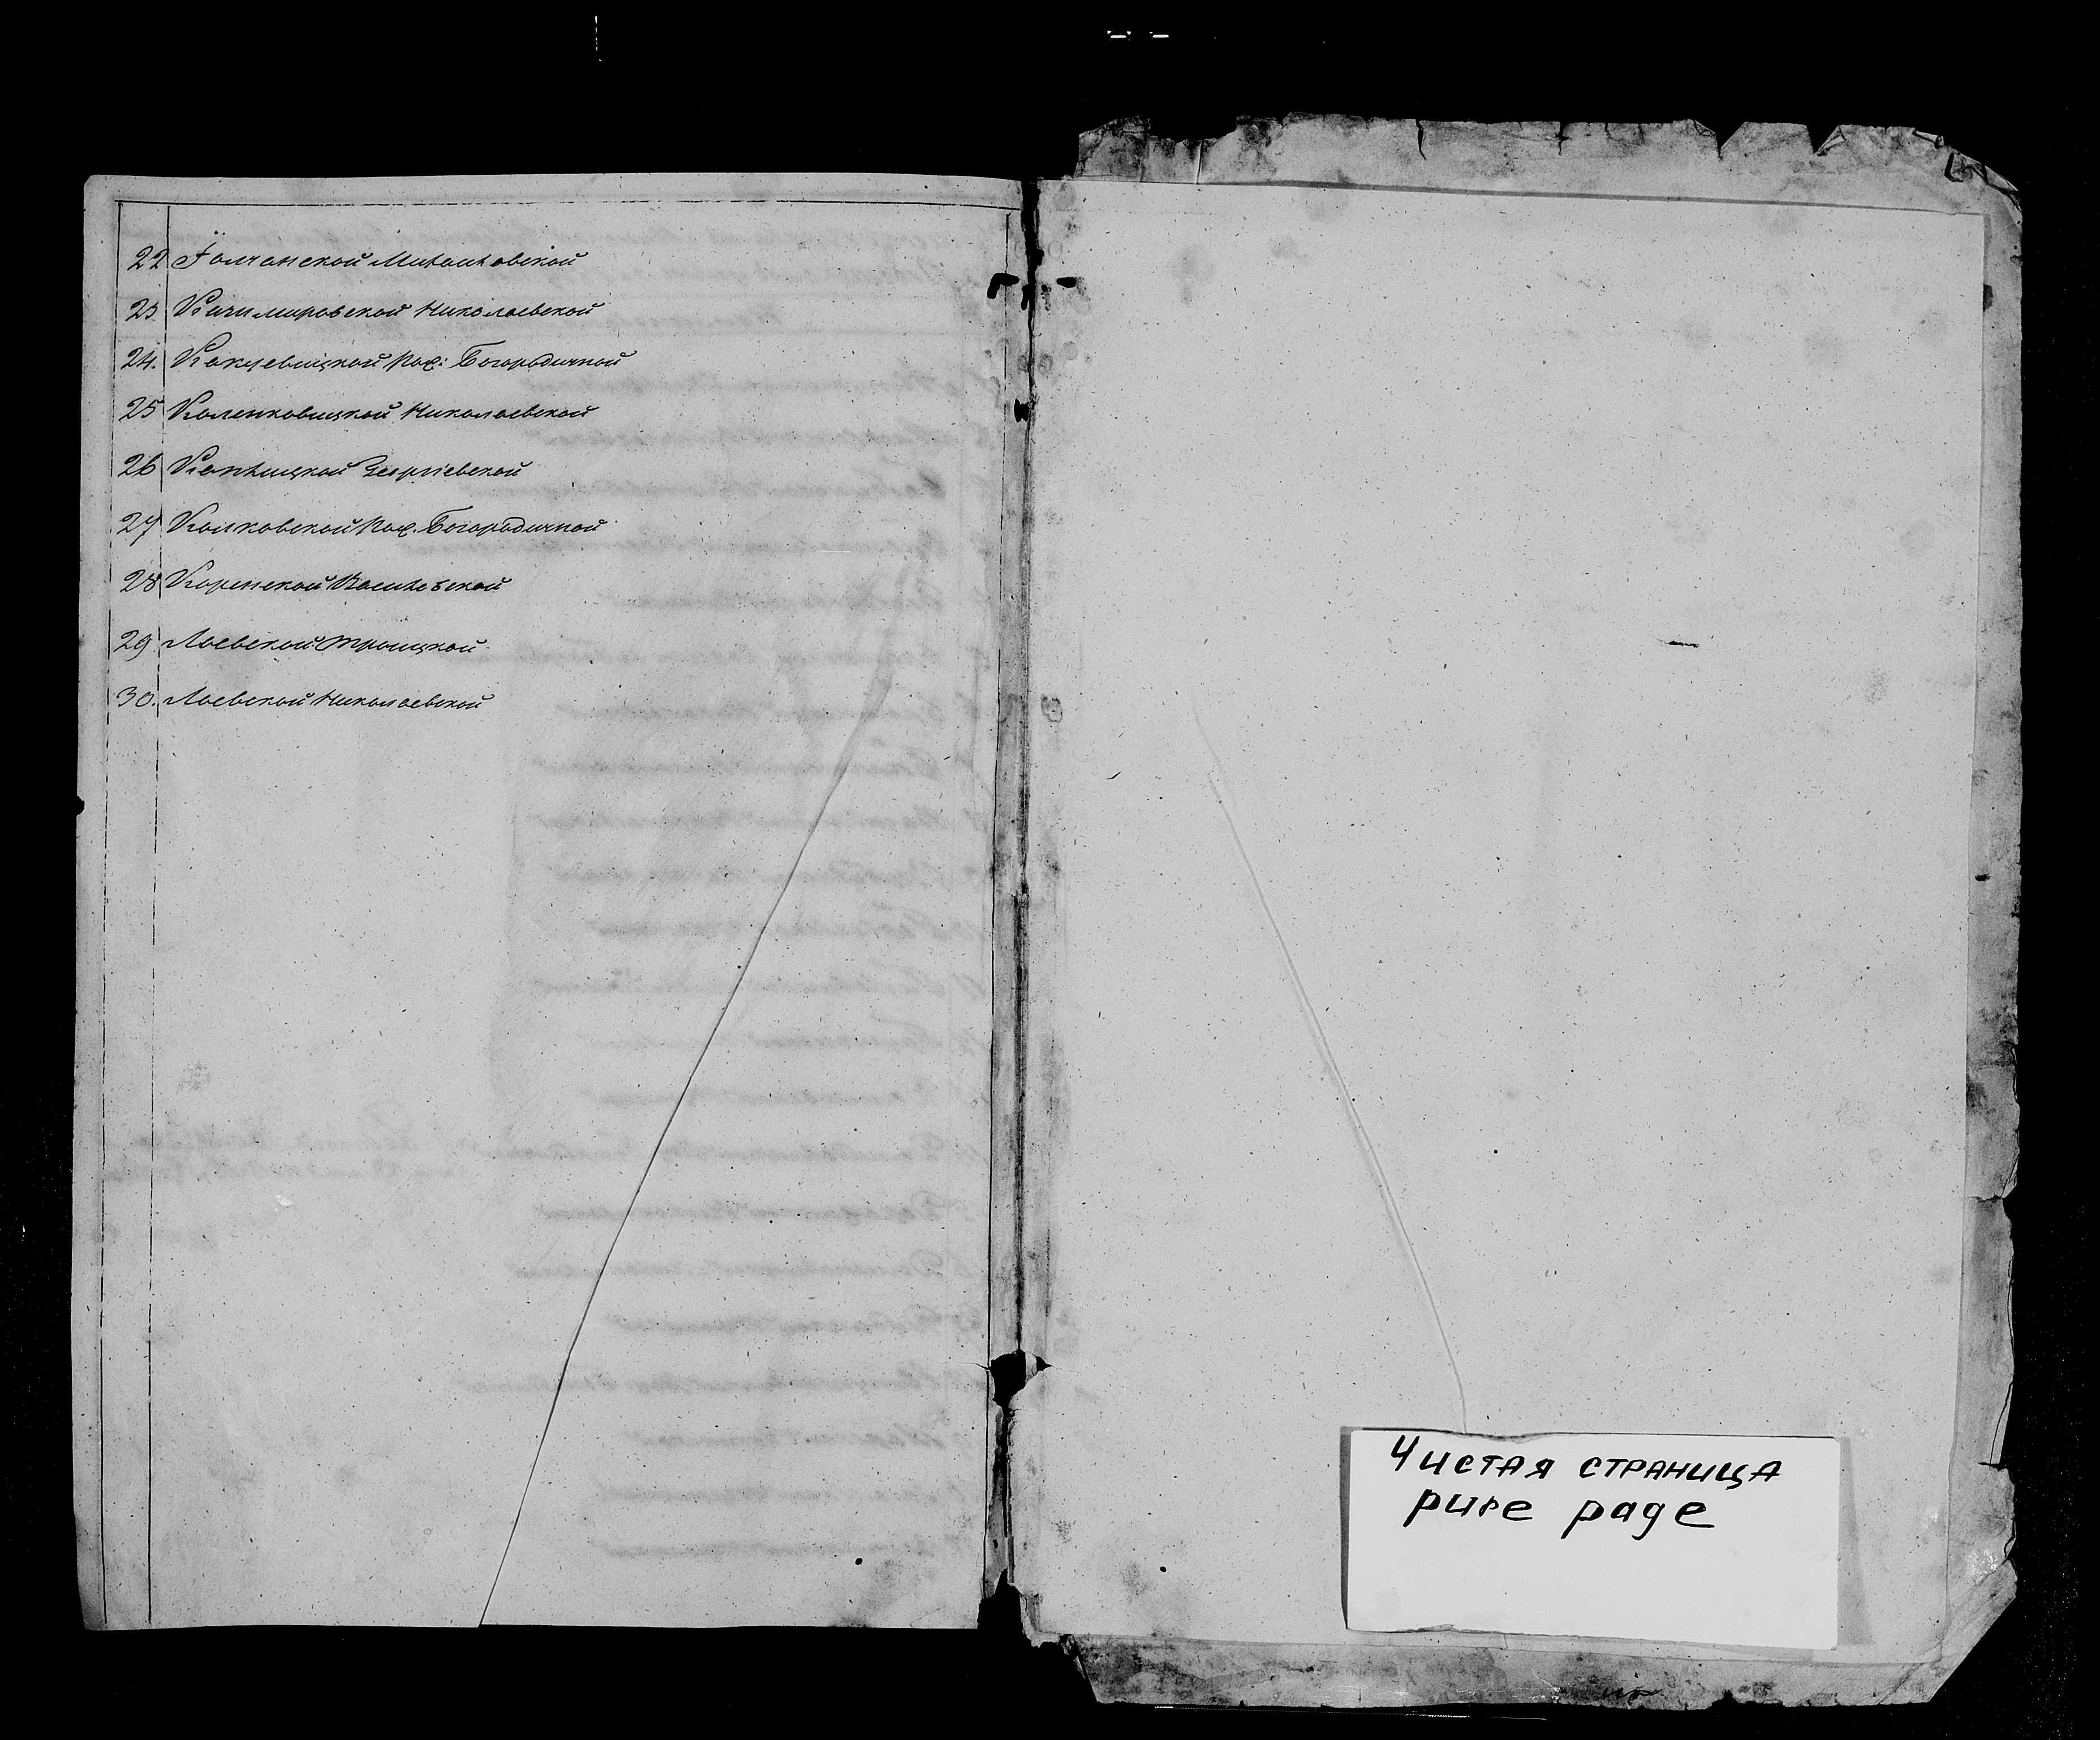 22 Іолчанской Михаиловской
23. Кичимировской Николаевской
24. Кокуевицкой Рож: Богородичной
25 Каленковицкой Николаевской
26 Капѣлицкой Георгіевской
27 Колковской Рож. Богородичной
28 Коренской Васильевской
29 Лоевской Троицкой
30. Лоевской Николаевской
Чистая страница
pure page